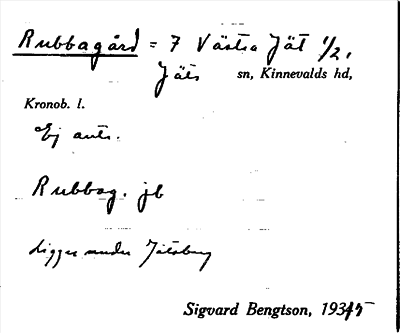 Rubbagård = 7 Västra Jät 1/2,
Jäts sn, Kinnevalds hd,
Kronob. l.
Ej ants.
Rubbag. jb
Ligger under Jätsberg
Sigvard Bengtson, 1935